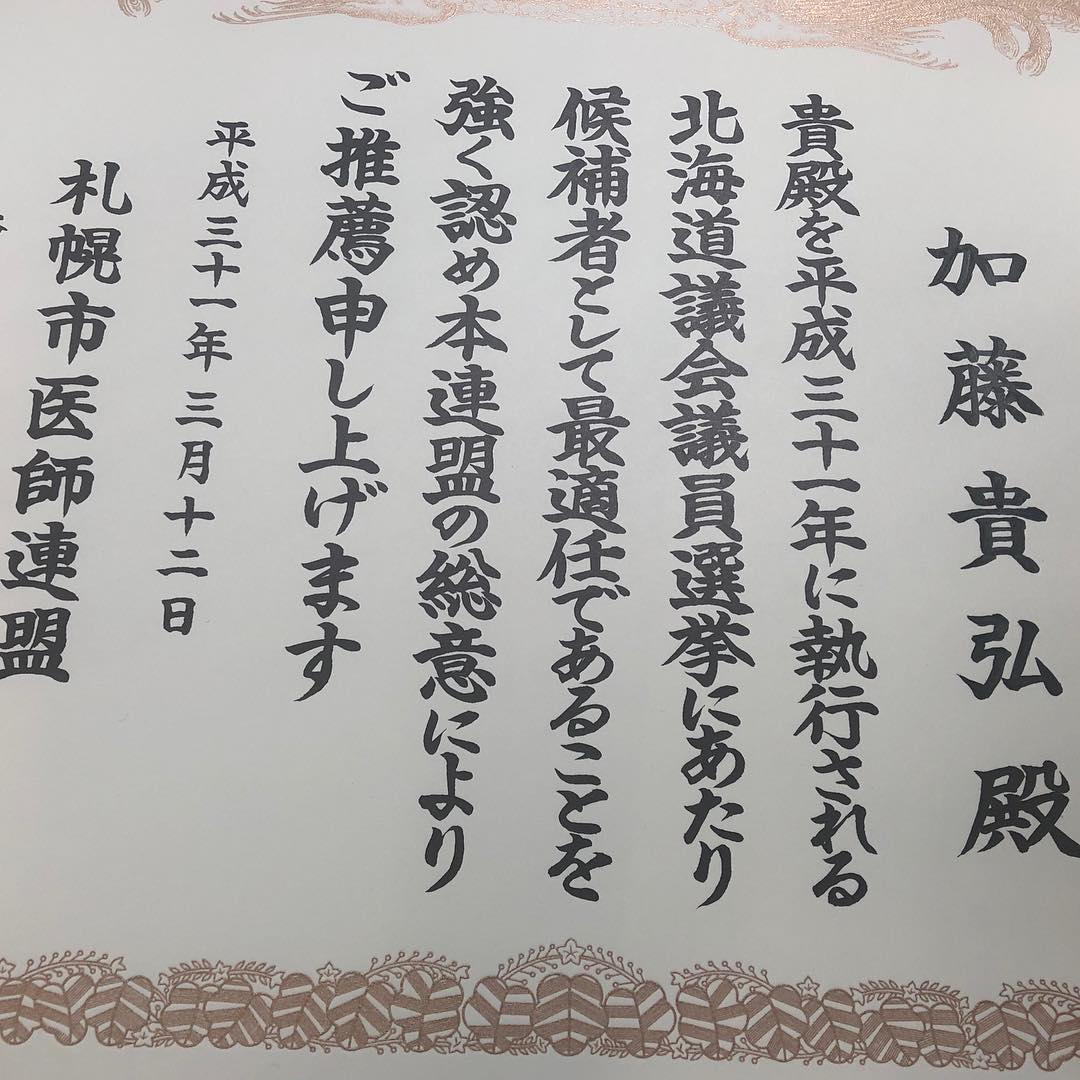 加藤貴弘殿
貴殿を平成三十一年に執行される
北海道議会議員選挙にあたり
候補者として最適任であることを
強く認め本連盟の総意により
ご推薦申し上げます
平成三十一年三月十二日
札幌市医師連盟